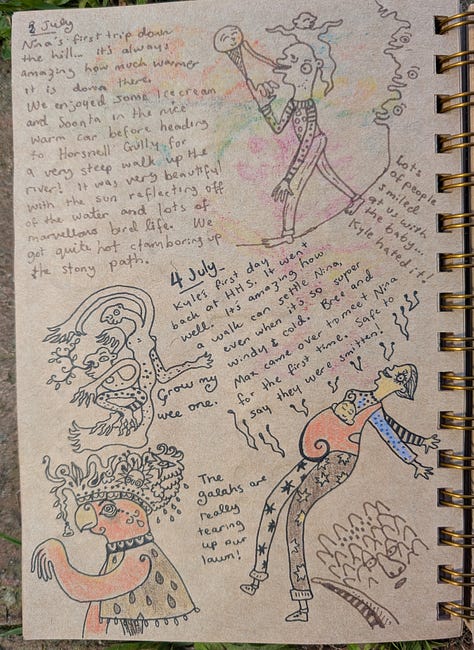 3 July
Nina's first trip down
the hill... it's always
amazing how much warmer
it is down there.
We enjoyed some Icecream
and Soanta in the nice
warm car before heading
to Horsnell Gully for
a very steep walk up the
river! It was very beautiful
with the sun reflecting off
of the water and lots of
marvellous bird life. We
got quite hot clamboring up
the stony path.
Lots
of people
smiled
at us with
the baby.
Kyle hated it!
4 July-
Kyle's first day
back at HHS. It went
well. It's amazing how
a walk can settle Nina,
even when it's so super
windy & cold! Bree and
Max came over to meet Nina
for the first time. Safe to
say they were smitten!
Grow my
wee one.
The
galahs are
really
tearing
up our
lawn!